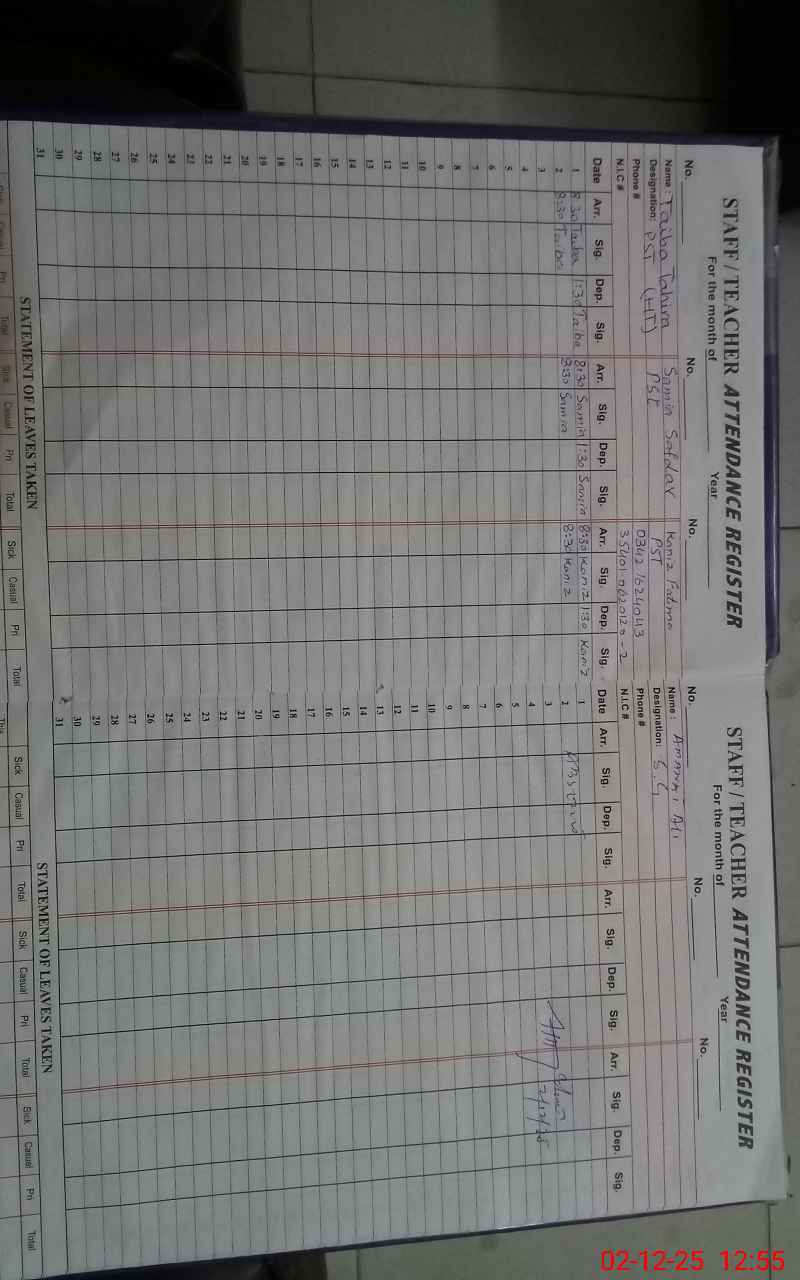 STAFF / TEACHER ATTENDANCE REGISTER
For the month of Year
No. No. No.
Name : Taiba Tahira Samin Safdar Kaniz Fatma
Designation: PST (HT) PST PST
Phone # 0342 1624043
N.I.C #
Date Arr. Sig. Dep. Sig. Arr. Sig. Dep. Sig. Arr. Sig. Dep. Sig.
1 8:30 Taiba 1:30 Taiba 8:30 Samin 1:30 Samin 8:30 Kaniz 1:30 Kaniz
2 8:30 Taiba 8:30 Samin 8:30 Kaniz
3
4
5
6
7
8
9
10
11
12
13
14
15
16
17
18
19
20
21
22
23
24
25
26
27
28
29
30
31
STATEMENT OF LEAVES TAKEN
Casual Pri Total Sick Casual Pri Total Sick Casual Pri Total
STAFF / TEACHER ATTENDANCE REGISTER
For the month of Year
No. No. No.
Name : Ali
Designation: S.G
Phone #
N.I.C #
Date Arr. Sig. Dep. Sig. Arr. Sig. Dep. Sig. Arr. Sig. Dep. Sig.
1
2
2/12/25
3
4
5
6
7
8
9
10
11
12
13
14
15
16
17
18
19
20
21
22
23
24
25
26
27
28
29
30
31
STATEMENT OF LEAVES TAKEN
Sick Casual Pri Total Sick Casual Pri Total Sick Casual Pri Total
02-12-25 12:55